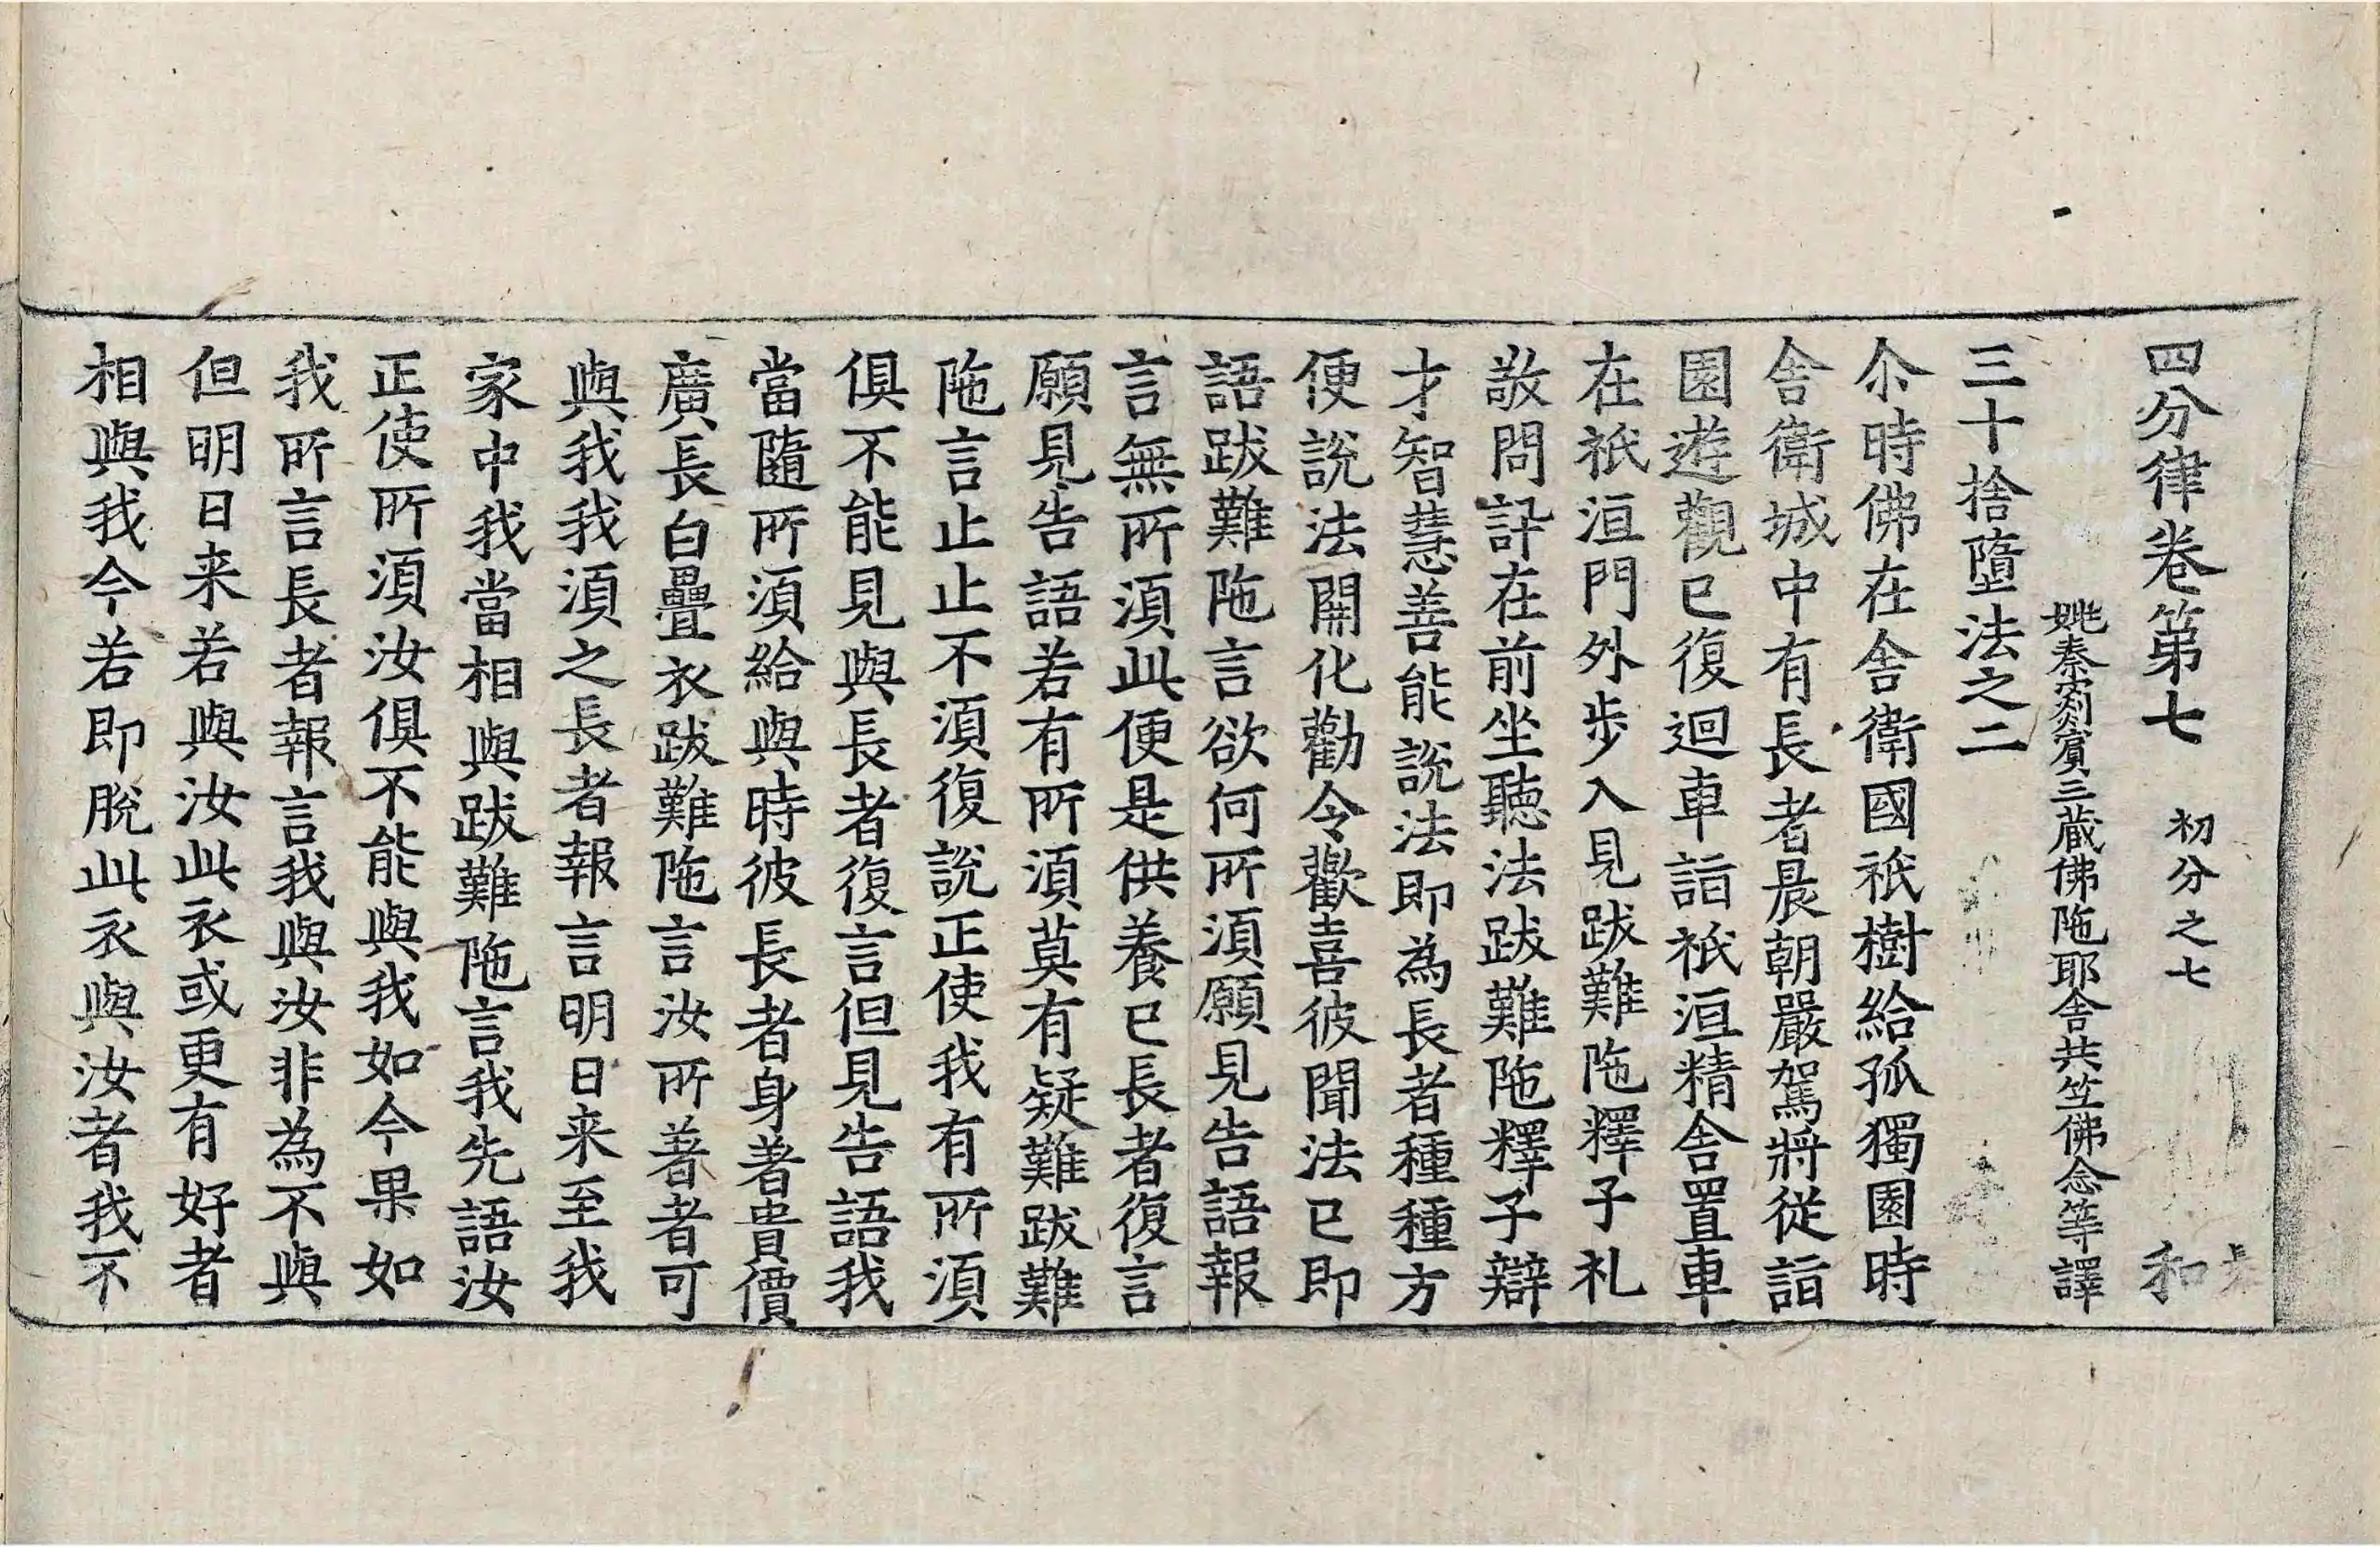 四分律卷第七 初分之七 和
姚秦罽賓三藏佛陁耶舍共竺佛念等譯
三十捨墮法之二
尒時佛在舍衛國祇樹給孤獨園時
舍衛城中有長者晨朝嚴駕將從詣
園遊觀已復迴車詣祇洹精舍置車
在祇洹門外步入見跋難陁釋子礼
敬問訊在前坐聽法跋難陁釋子辯
才智慧善能說法即為長者種種方
便說法開化勸令歡喜彼聞法已即
語跋難陁言欲何所湏願見告語報
言無所湏此便是供養已長者復言
願見告語若有所湏莫有疑難跋難
陁言止止不湏復說正使我有所湏
俱不能見與長者復言但見告語我
當隨所湏給與時彼長者身著貴價
廣長白疊衣跋難陁言汝所著者可
與我我湏之長者報言明日来至我
家中我當相與跋難陁言我先語汝
正使所湏汝俱不能與我如今果如
我所言長者報言我與汝非為不與
但明日来若與汝此衣或更有好者
相與我今若即脫此衣與汝者我不